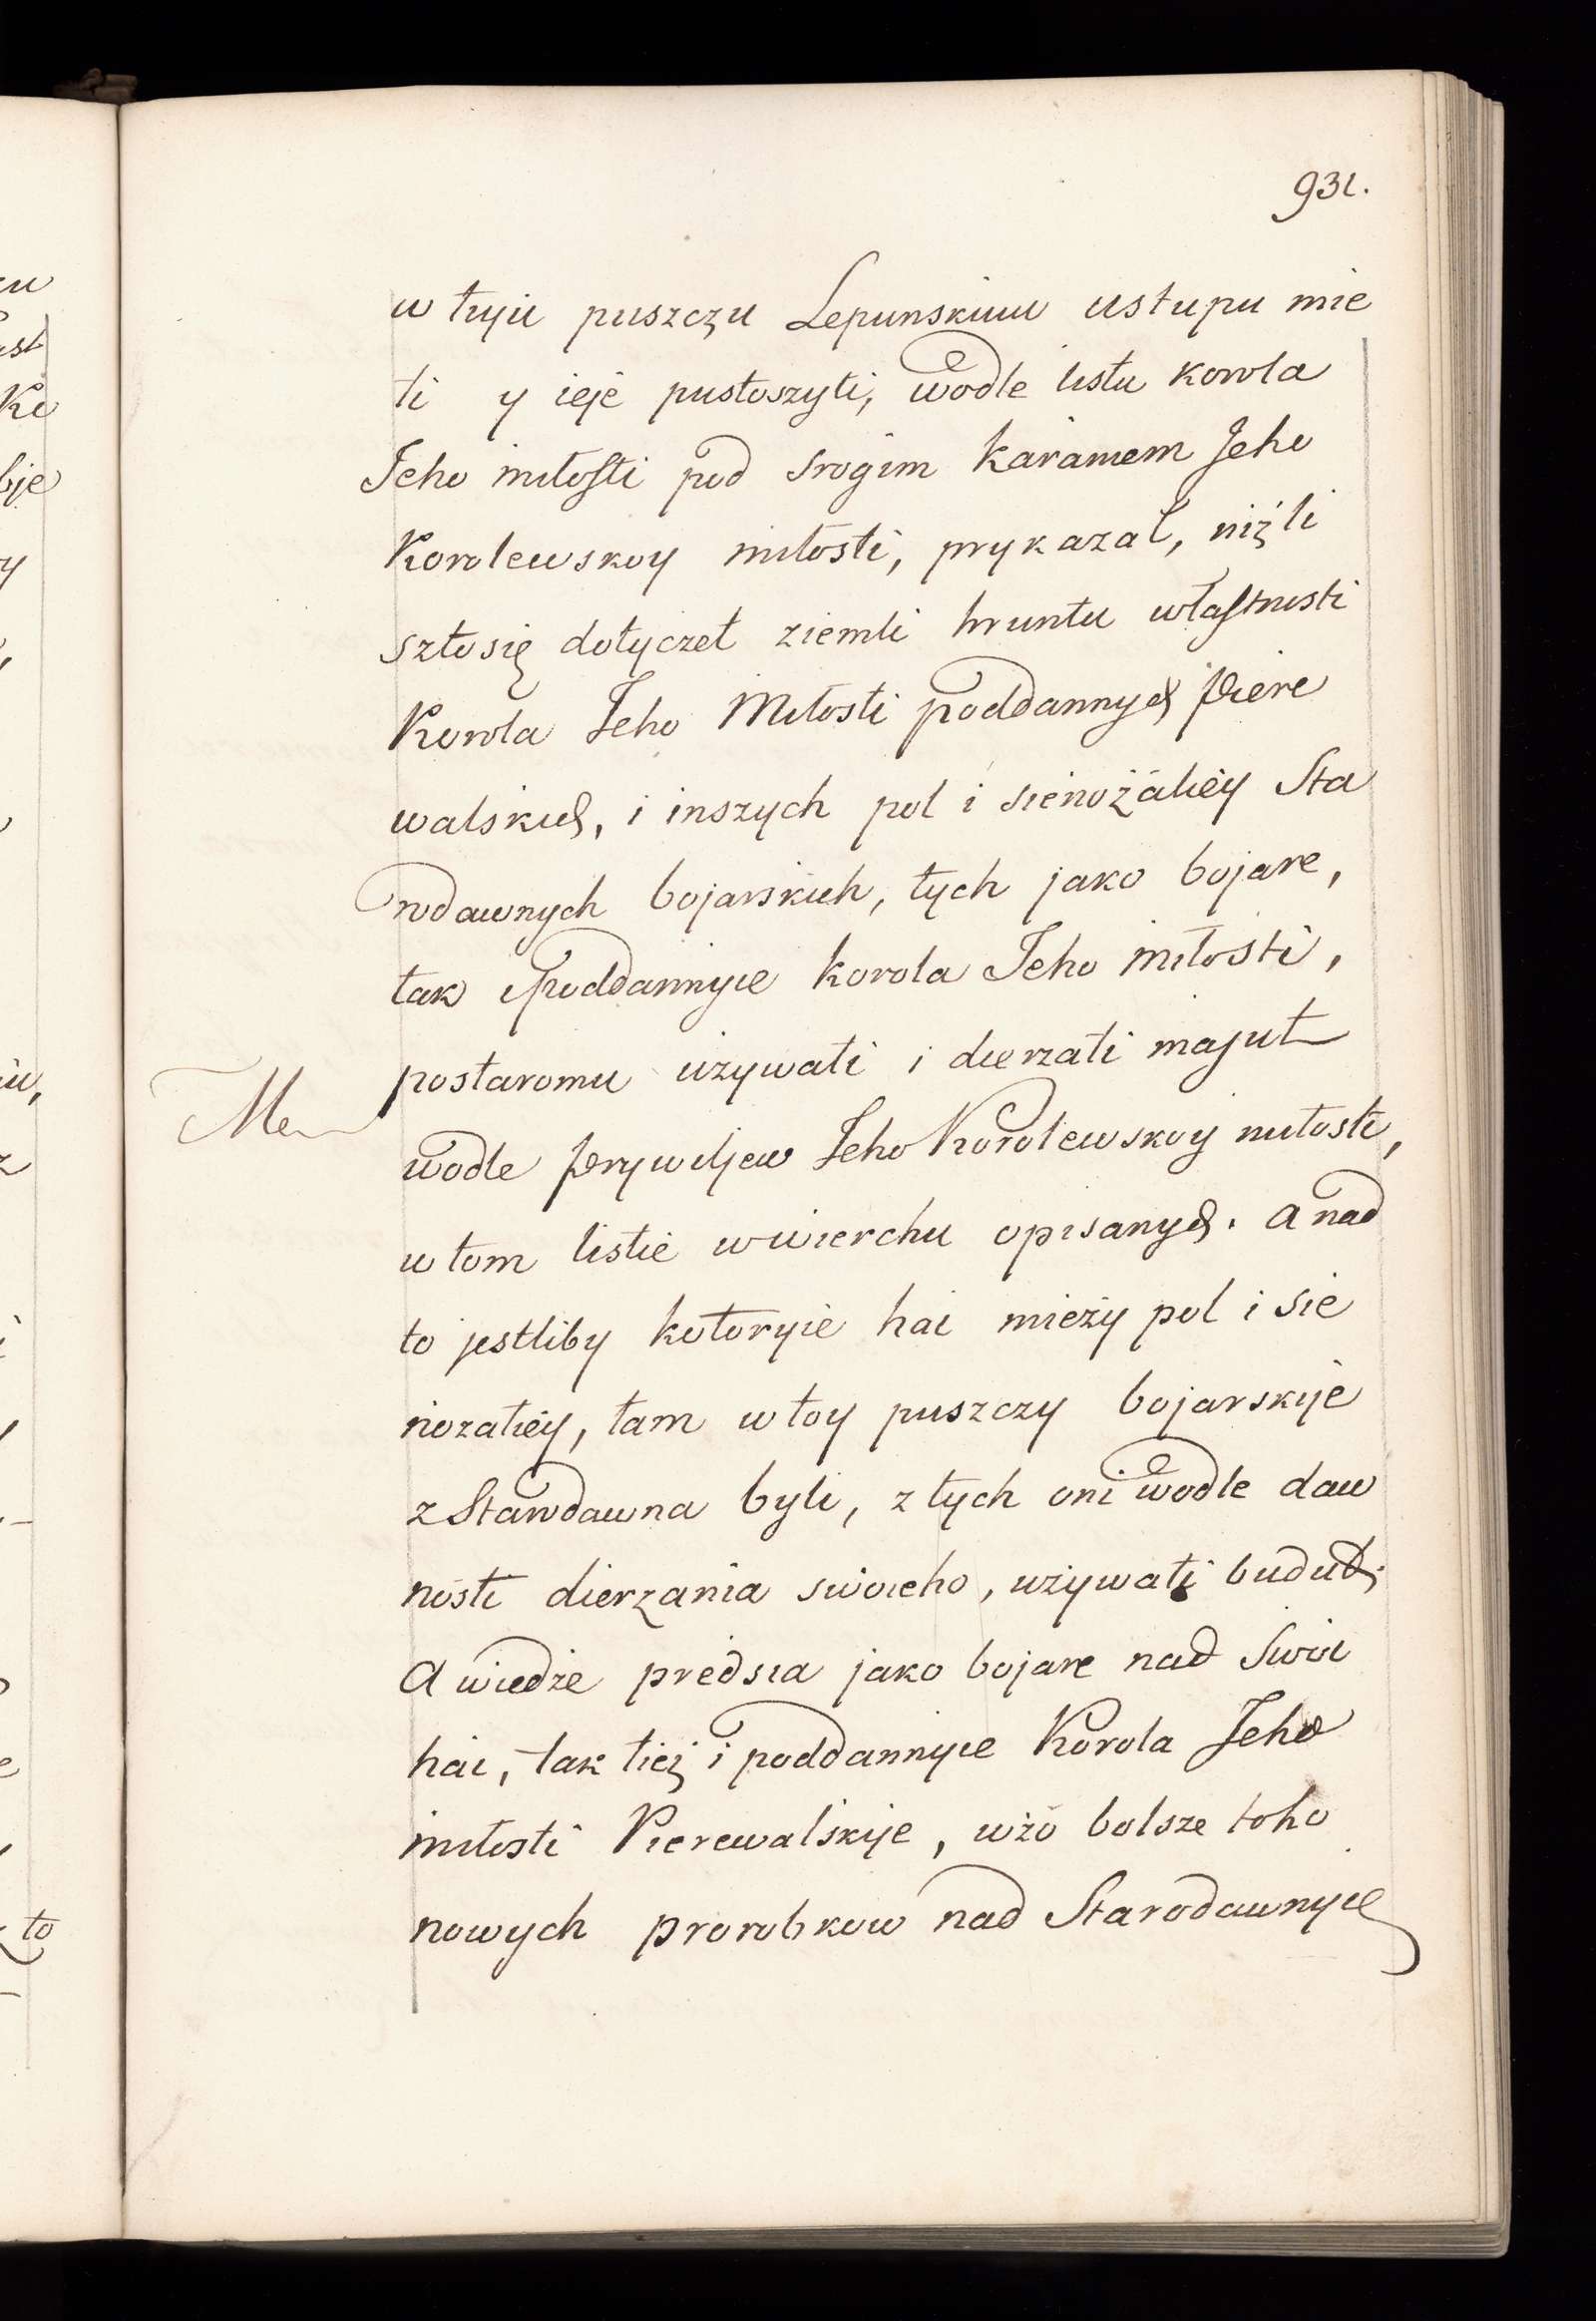 931.
w tuju puszczu Lepunskuiu ustupu mie
ti y ieje pustoszyti, wodle listu korola
Jeho miłosti pod srogim karaniem Jeho
Korolewskoy miłosti, prykazał, niżli
sztosię dotyczet ziemli hruntu własnosti
Korola Jeho Miłosti poddannych Piere
walskich, i inszych pol i sienożatiey Sta
rodawnych bojarskich, tych jako bojare,
tak i poddannyie korola Jeho miłosti,
postaromu używati i dierzati majut
wodle prywiljew Jeho Korolewskoy miłosti,
w tom listie wwierchu opisanych. a nad
to jestliby kotoryie hai mieży pol i sie
nozatiey, tam w toy puszczy bojarskije
z Starodawna byli, z tych oni wodle daw
nosti dierzania swoieho, używati budut;
A wiedże predsia jako bojare nad swoi
hai, tak tież i poddannyie Korola Jeho
miłosti Pierewalskije, wżo bolsze toho
nowych prorobkow nad Starodawnyie